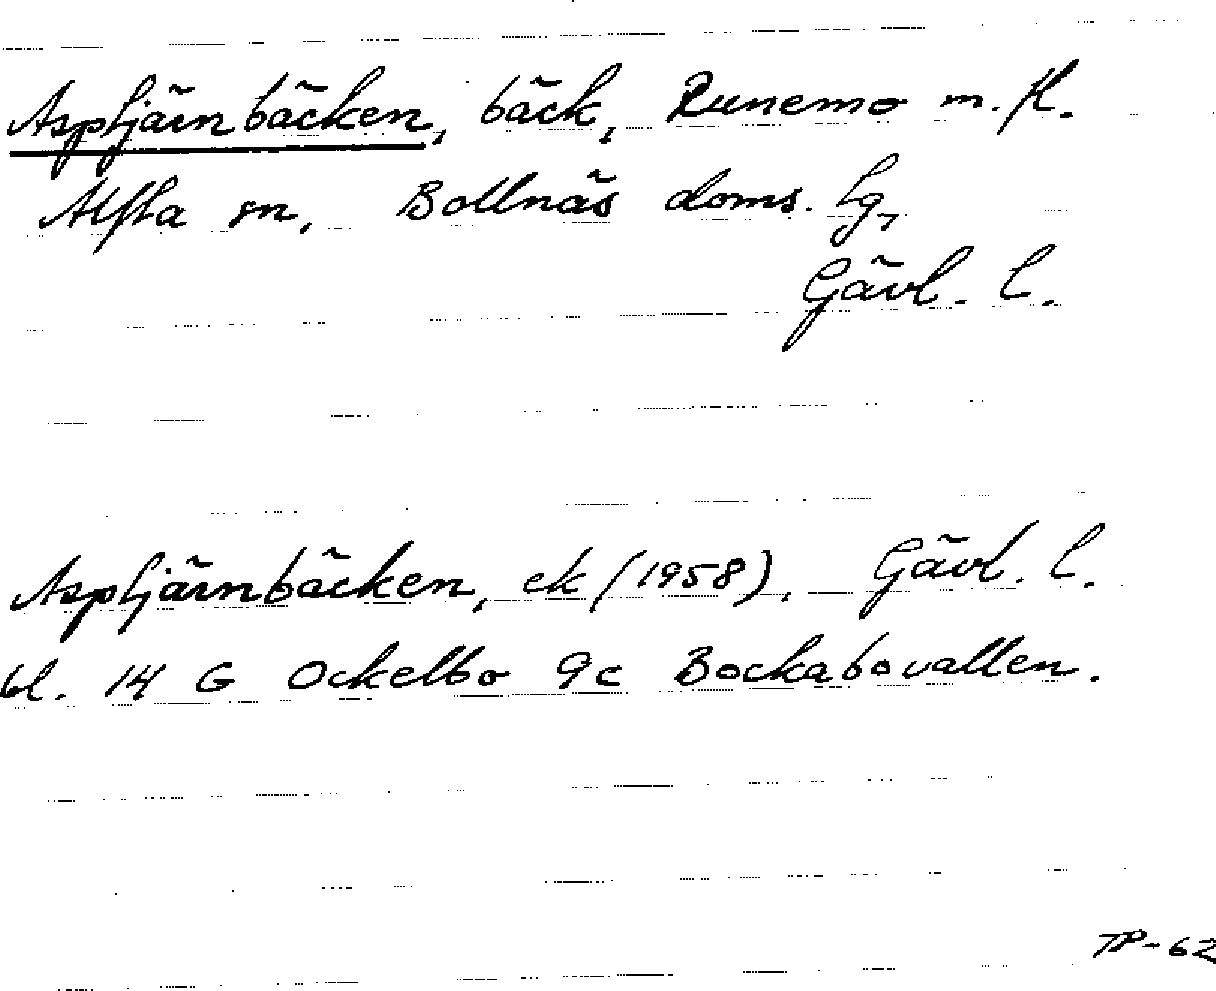 Asptjärnbäcken, bäck, Runemo m. fl.
Alfta sn, Bollnäs doms. lg,
Gävl. l.
Asptjärnbäcken, ek (1958), Gävl. l.
bl. 14 G Ockelbo 9c Bockabovallen.
TP-62